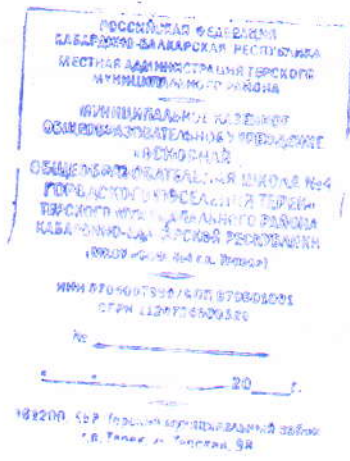 РОССИЙСКАЯ ФЕДЕРАЦИЯ
КАБАРДИНО-БАЛКАРСКАЯ РЕСПУБЛИКА
МЕСТНАЯ АДМИНИСТРАЦИЯ ТЕРСКОГО
МУНИЦИПАЛЬНОГО РАЙОНА
МУНИЦИПАЛЬНОЕ КАЗЕННОЕ
ОБЩЕОБРАЗОВАТЕЛЬНОЕ УЧРЕЖДЕНИЕ
«ОСНОВНАЯ
ОБЩЕОБРАЗОВАТЕЛЬНАЯ ШКОЛА №4
ГОРОДСКОГО ПОСЕЛЕНИЯ ТЕРЕК»
ТЕРСКОГО МУНИЦИПАЛЬНОГО РАЙОНА
КАБАРДИНО-БАЛКАРСКОЙ РЕСПУБЛИКИ
ИНН КПП
ОГРН
№
20 г.
КБР Терский муниципальный район
г.п. Терек,